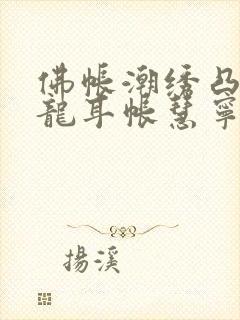 佛帳潮绣凸
龍耳帳慧寧
揚溪